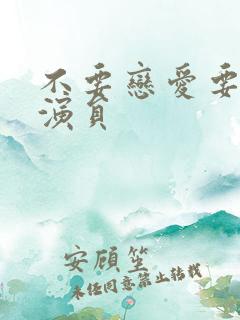 不要戀愛要
演員
安顧笙
未經同意禁止轉載